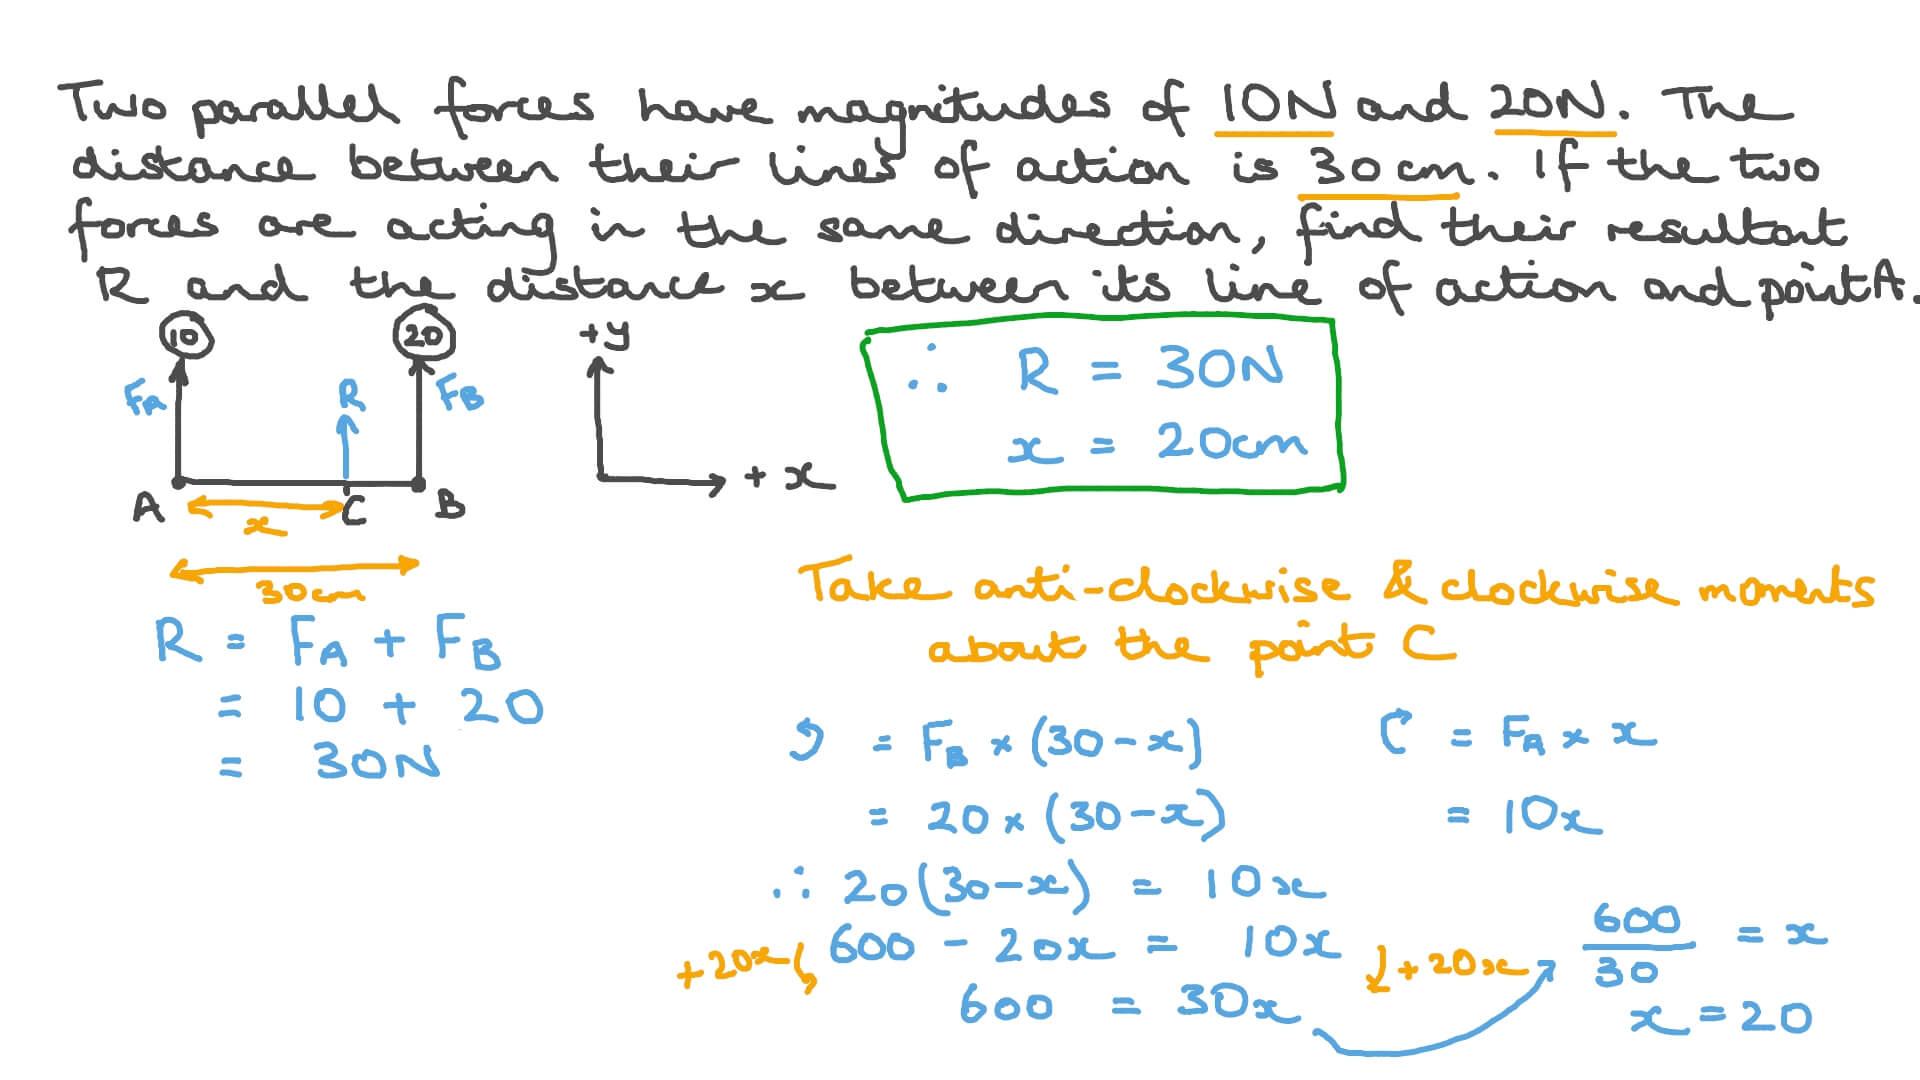 Two parallel forces have magnitudes of 10N and 20N. The
distance between their lines of action is 30cm. If the two
forces are acting in the same direction, find their resultant
R and the distance x between its line of action and point A.
10 20 +y
∴ R = 30N
F_A R F_B
x = 20cm
+ x
A x C B
30cm
Take anti-clockwise & clockwise moments
about the point C
R = F_A + F_B
= 10 + 20
= 30N
↺ = F_B × (30-x) ↻ = F_A × x
= 20 × (30-x) = 10x
∴ 20(30-x) = 10x
+20x 600 - 20x = 10x +20x
600 = 30x
600/30 = x
x = 20